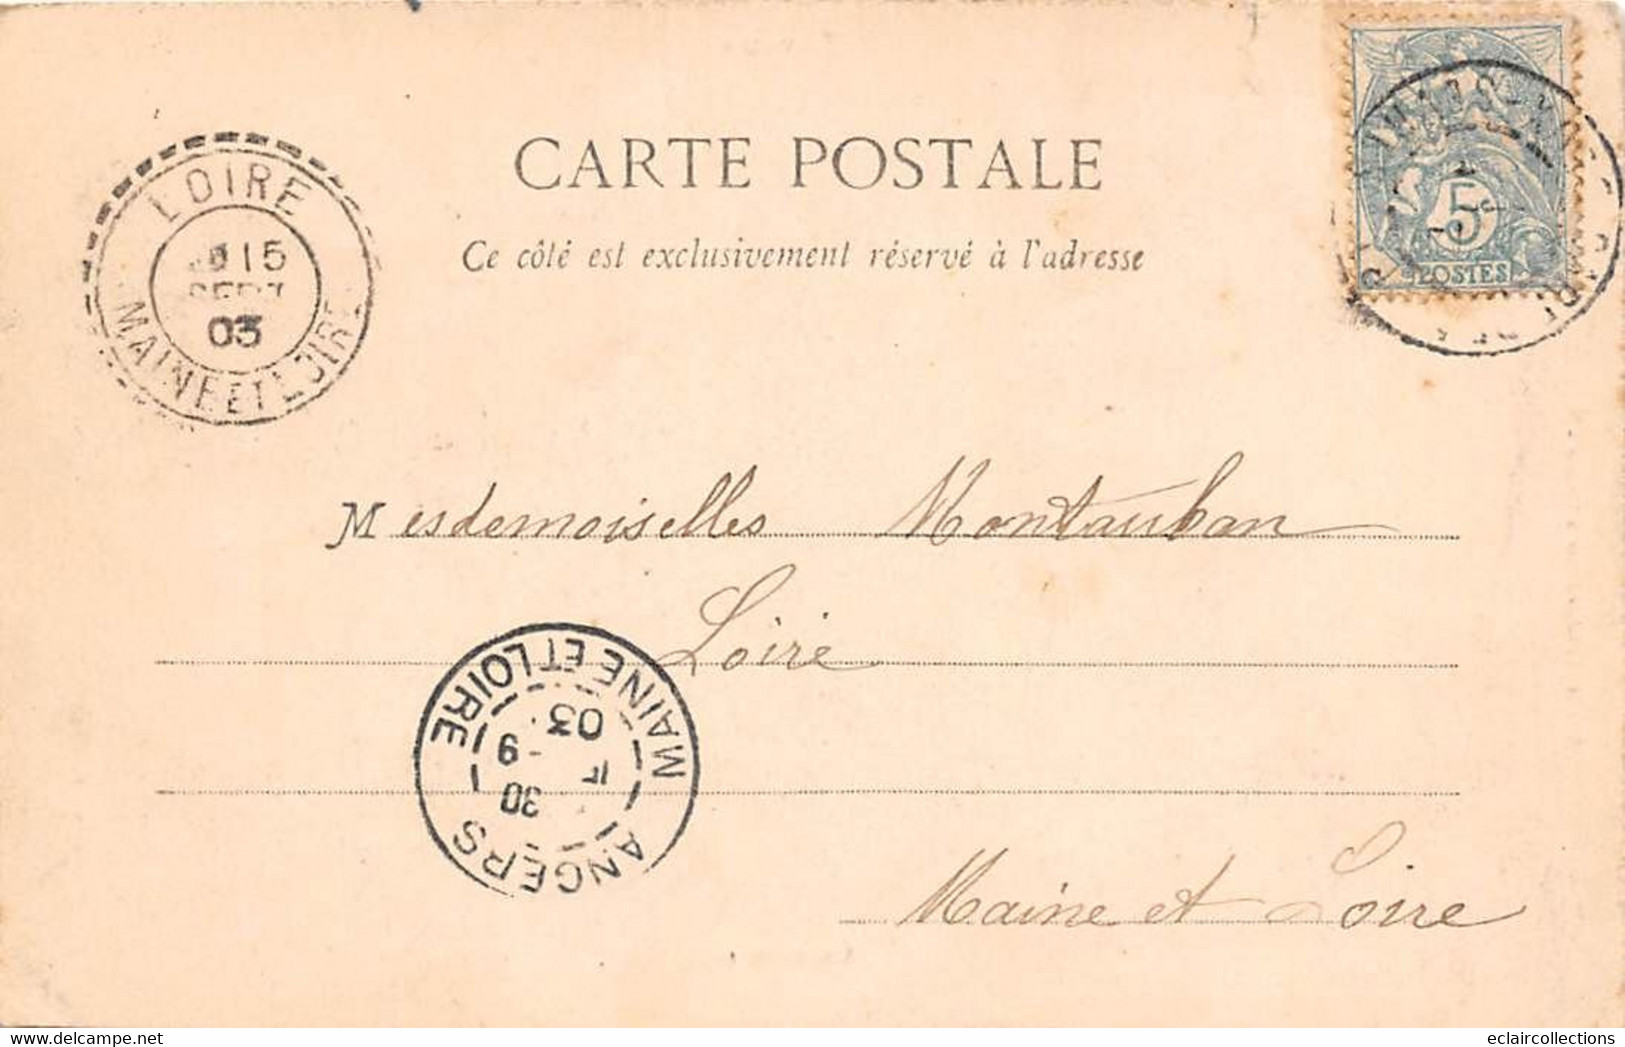 CARTE POSTALE
Ce côté est exclusivement réservé à l'adresse
5
POSTES
LOIRE
15
SEPT
03
MAINE ET LOIRE
Mesdemoiselles Montauban
Loiré
ANGERS
30
9
03
MAINE ET LOIRE
Maine et Loire
https://www.delcampe.net
eclaircollections